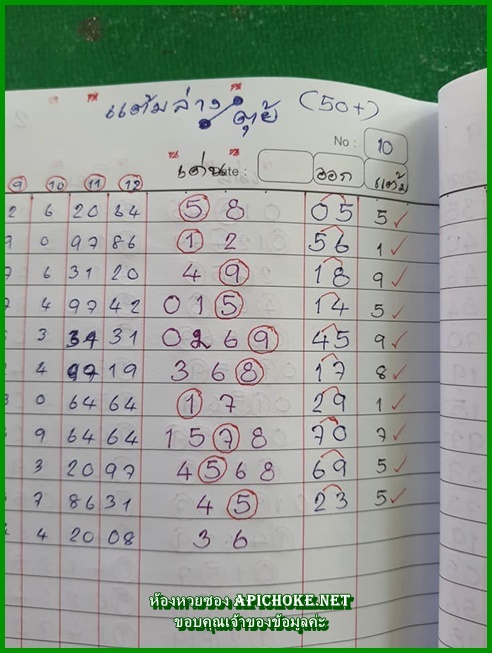 แต้มล่าง/ตุ้ย (50+)
No : 10
เด่น ate : ออก แต้ม
9 10 11 12
2 6 20 34 5 8 05 5 ✓
9 0 97 86 1 2 56 1 ✓
7 6 31 20 4 9 18 9 ✓
7 4 97 42 0 1 5 14 5 ✓
3 31 0 2 6 9 45 9 ✓
2 4 97 19 3 6 8 17 8 ✓
3 0 64 64 1 7 29 1 ✓
9 64 64 1 5 7 8 70 7 ✓
3 20 97 4 5 6 8 69 5 ✓
7 86 31 4 5 23 5 ✓
4 20 08 3 6
ห้องหวยซอง APICHOKE.NET
ขอบคุณเจ้าของข้อมูลค่ะ